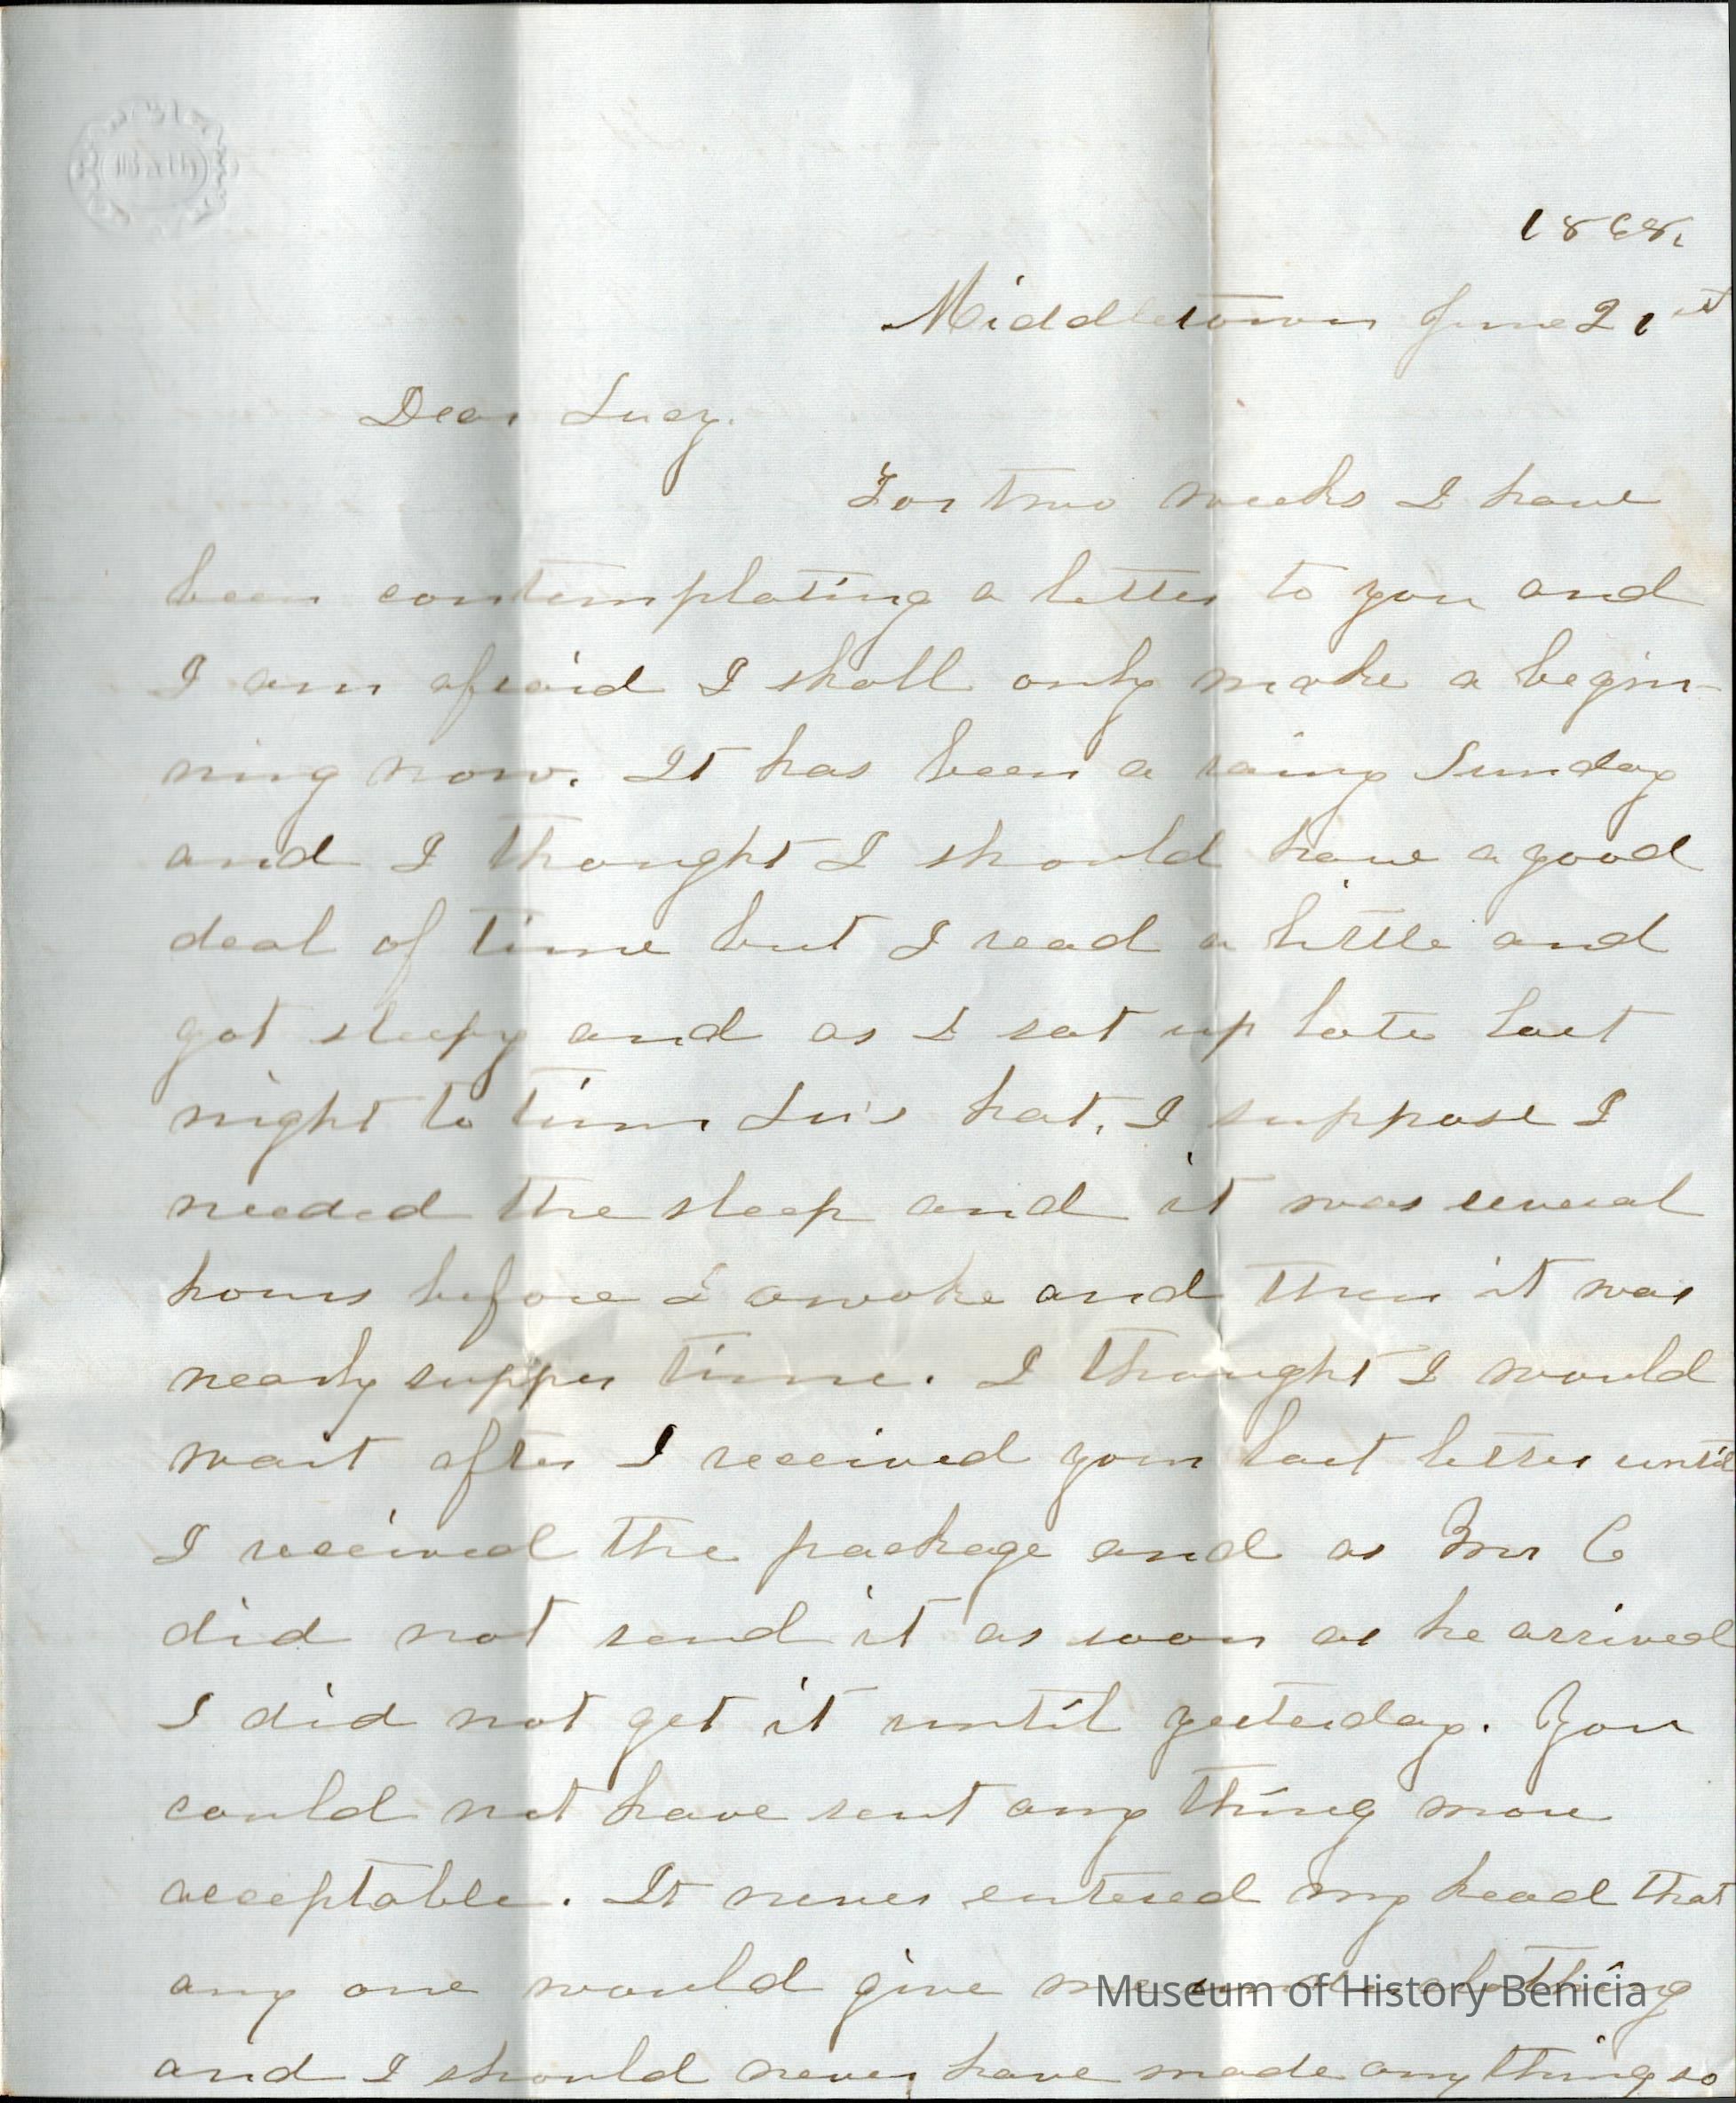 Bath
1868.
Middletown June 21st
Dear Lucy.
For two weeks I have
been contemplating a letter to you and
I am afraid I shall only make a begin-
ning now. It has been a rainy Sunday
and I thought I should have a good
deal of time but I read a little and
got sleepy and as I sat up late last
night to trim Lu's hat, I suppose I
needed the sleep and it was several
hours before I awoke and then it was
nearly supper time. I thought I would
wait after I received your last letter until
I received the package and as Mr C
did not send it as soon as he arrived
I did not get it until yesterday. You
could not have sent any thing more
acceptable. It never entered my head that
any one would give me under clothing
and I should never have made any thing so
Museum of History Benicia